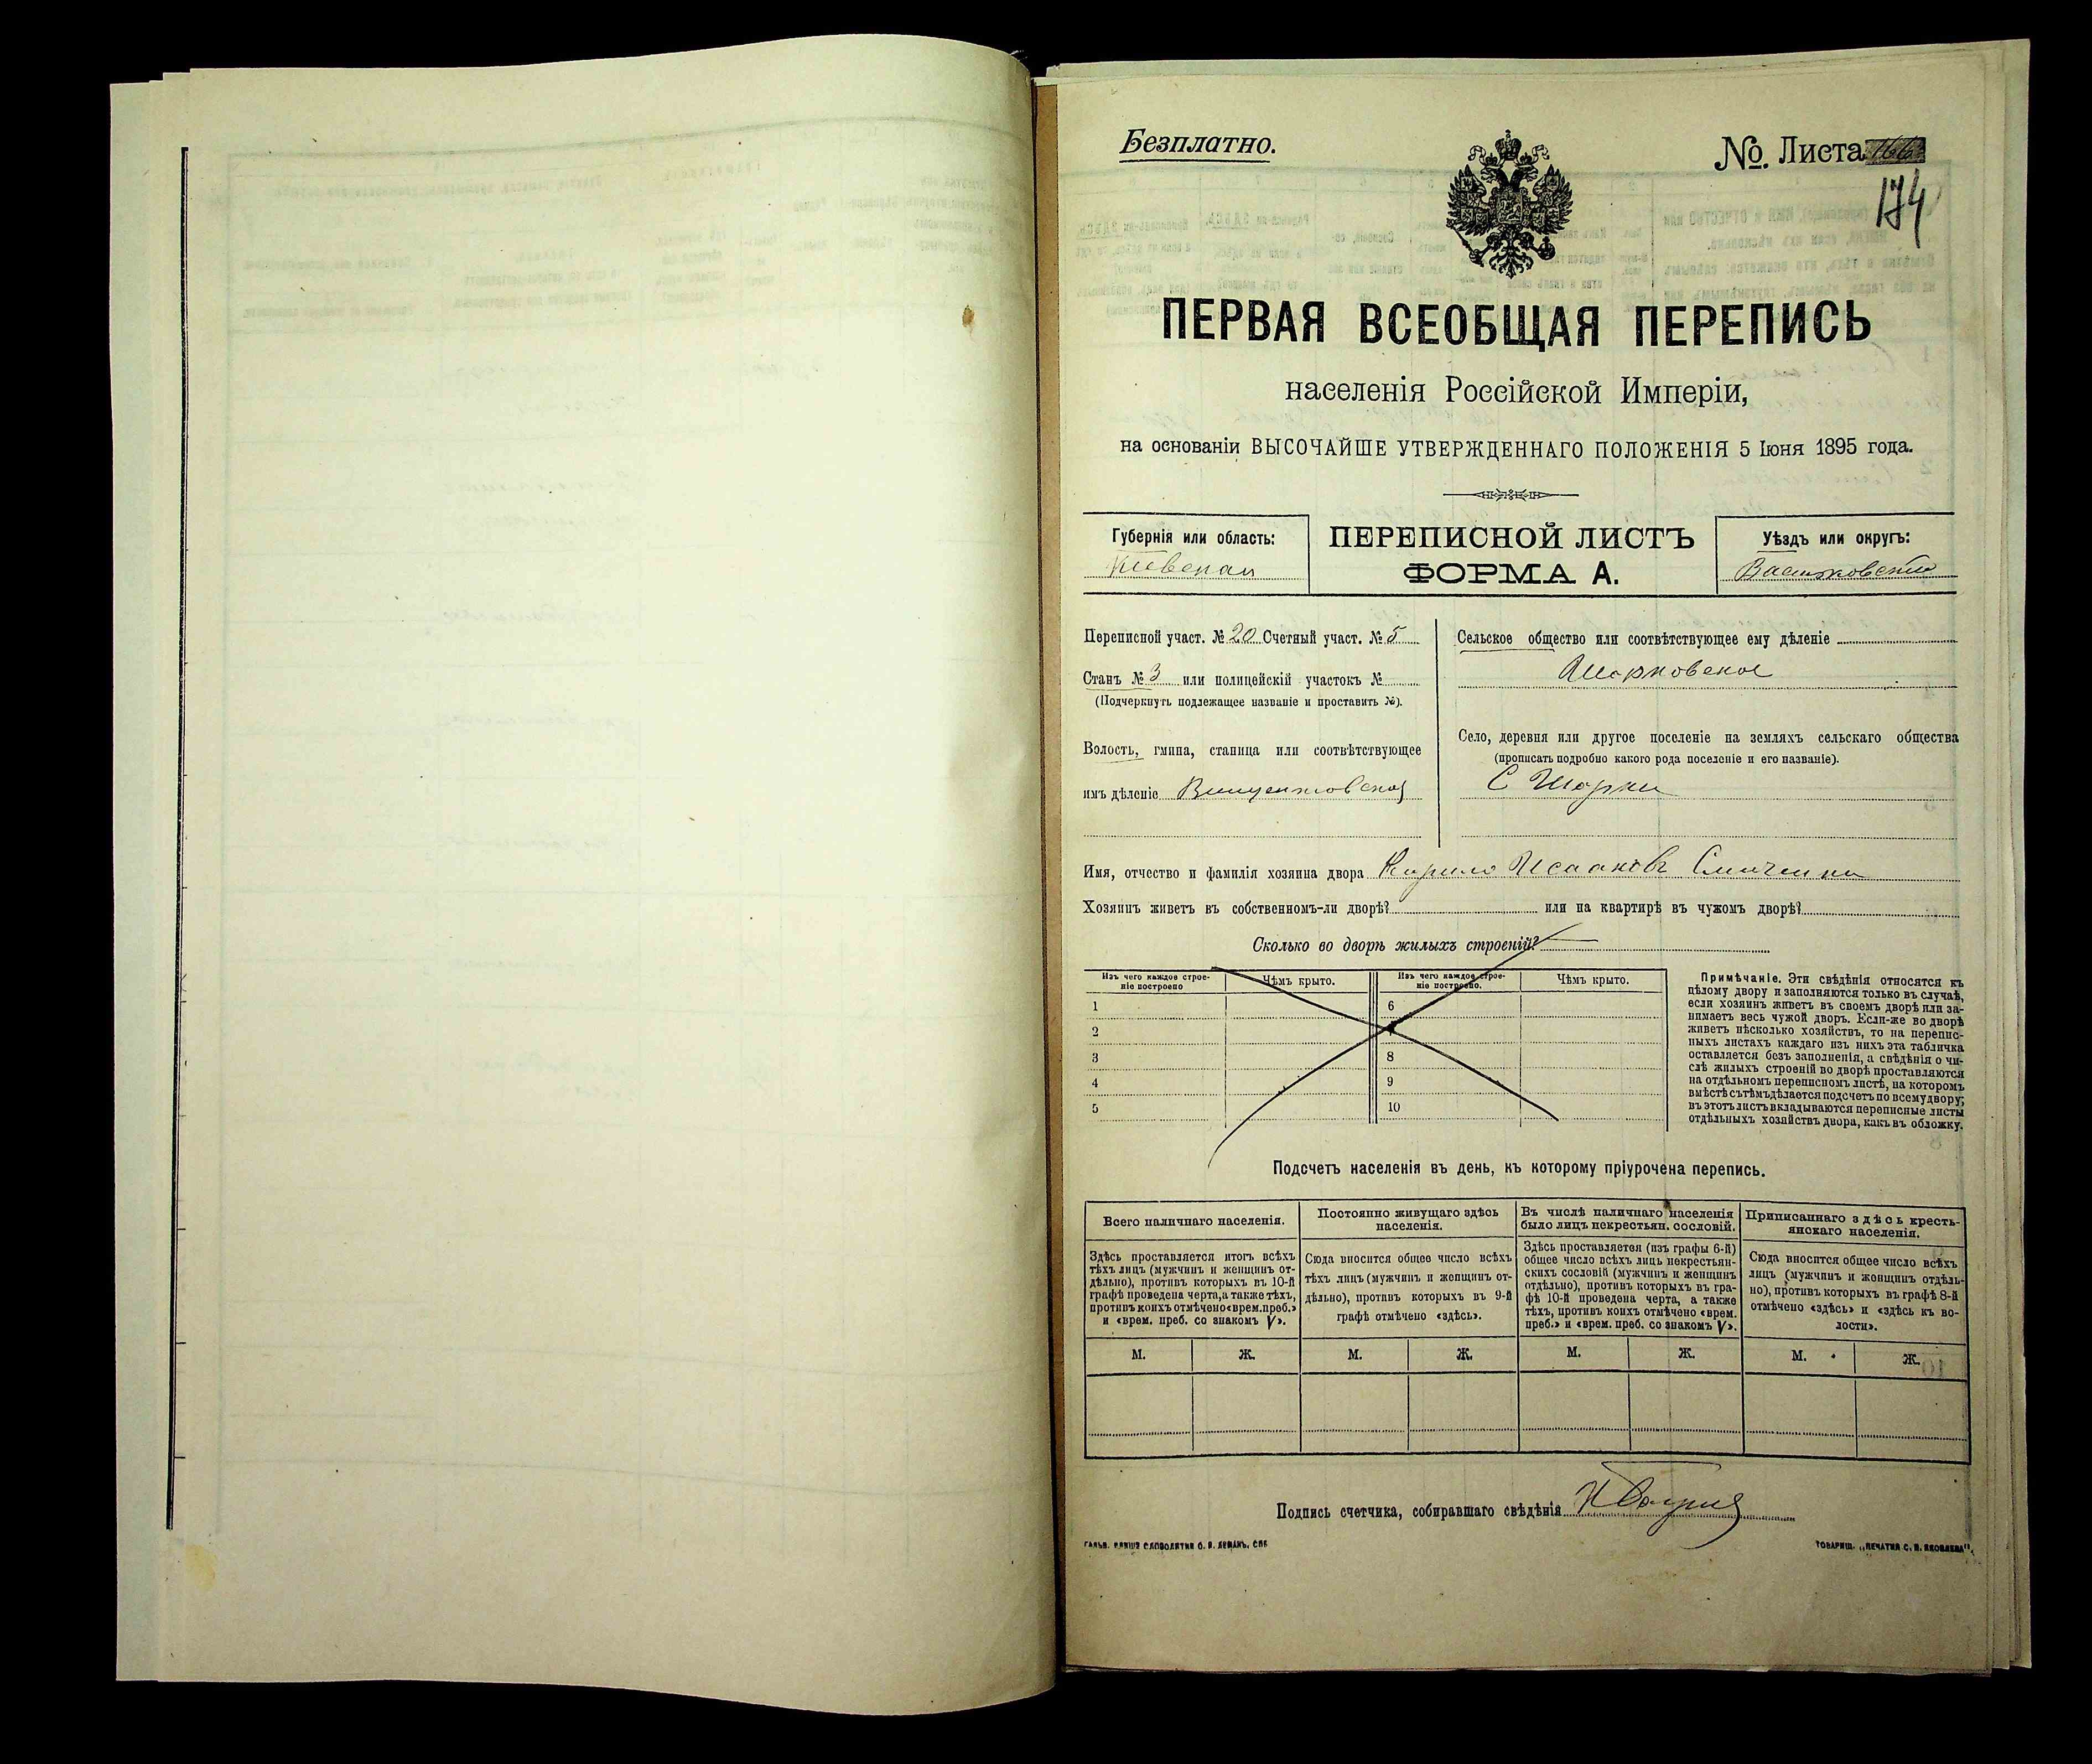 Безплатно.
№. Листа 166
174
ПЕРВАЯ ВСЕОБЩАЯ ПЕРЕПИСЬ
населенія Россійской Имперіи,
на основаніи ВЫСОЧАЙШЕ УТВЕРЖДЕННАГО ПОЛОЖЕНІЯ 5 Іюня 1895 года.
Губернія или область:
Кіевская
ПЕРЕПИСНОЙ ЛИСТЪ
ФОРМА А.
Уѣздъ или округъ:
Васильковскій
Переписной участ. № 20 Счетный участ. № 5
Станъ № 3 или полицейскій участокъ №
(Подчеркнуть подлежащее названіе и проставить №).
Волость, гмина, станица или соотвѣтствующее
имъ дѣленіе Винцентовская
Сельское общество или соотвѣтствующее ему дѣленіе
Шарковское
Село, деревня или другое поселеніе на земляхъ сельскаго общества
(прописать подробно какого рода поселеніе и его названіе).
С Шарки
Имя, отчество и фамилія хозяина двора Кирило Исааковъ
Хозяинъ живетъ въ собственномъ-ли дворѣ? или на квартирѣ въ чужомъ дворѣ?
Сколько во дворѣ жилыхъ строеній?
Изъ чего каждое строе-
ніе построено
Чѣмъ крыто.
Изъ чего каждое строе-
ніе построено.
Чѣмъ крыто.
1 6
2 7
3 8
4 9
5 10
Примѣчаніе. Эти свѣдѣнія относятся къ
цѣлому двору и заполняются только въ случаѣ,
если хозяинъ живетъ въ своемъ дворѣ или за-
нимаетъ весь чужой дворъ. Если-же во дворѣ
живетъ нѣсколько хозяйствъ, то на перепис-
ныхъ листахъ каждаго изъ нихъ эта табличка
оставляется безъ заполненія, а свѣдѣнія о чи-
слѣ жилыхъ строеній во дворѣ проставляются
на отдѣльномъ переписномъ листѣ, на которомъ
вмѣстѣ съ тѣмъ дѣлается подсчетъ по всему двору;
въ этотъ листъ вкладываются переписные листы
отдѣльныхъ хозяйствъ двора, какъ въ обложку.
Подсчетъ населенія въ день, къ которому пріурочена перепись.
Всего наличнаго населенія.
Здѣсь проставляется итогъ всѣхъ
тѣхъ лицъ (мужчинъ и женщинъ от-
дѣльно), противъ которыхъ въ 10-й
графѣ проведена черта, а также тѣхъ,
противъ коихъ отмѣчено «врем. преб.»
и «врем. преб. со знакомъ V».
Постоянно живущаго здѣсь
населенія.
Сюда вносится общее число всѣхъ
тѣхъ лицъ (мужчинъ и женщинъ от-
дѣльно), противъ которыхъ въ 9-й
графѣ отмѣчено «здѣсь».
Въ числѣ наличнаго населенія
было лицъ некрестьян. сословій.
Здѣсь проставляется (изъ графы 6-й)
общее число всѣхъ лицъ некрестьян-
скихъ сословій (мужчинъ и женщинъ
отдѣльно), противъ которыхъ въ гра-
фѣ 10-й проведена черта, а также
тѣхъ, противъ коихъ отмѣчено «врем.
преб.» и «врем. преб. со знакомъ V».
Приписаннаго здѣсь кресть-
янскаго населенія.
Сюда вносится общее число всѣхъ
лицъ (мужчинъ и женщинъ отдѣль-
но), противъ которыхъ въ графѣ 8-й
отмѣчено «здѣсь» и «здѣсь къ во-
лости».
М. Ж. М. Ж. М. Ж. М. Ж.
Подпись счетчика, собиравшаго свѣдѣнія
ТОВАРИЩ. „ПЕЧАТНЯ С. П. ЯКОВЛЕВА".